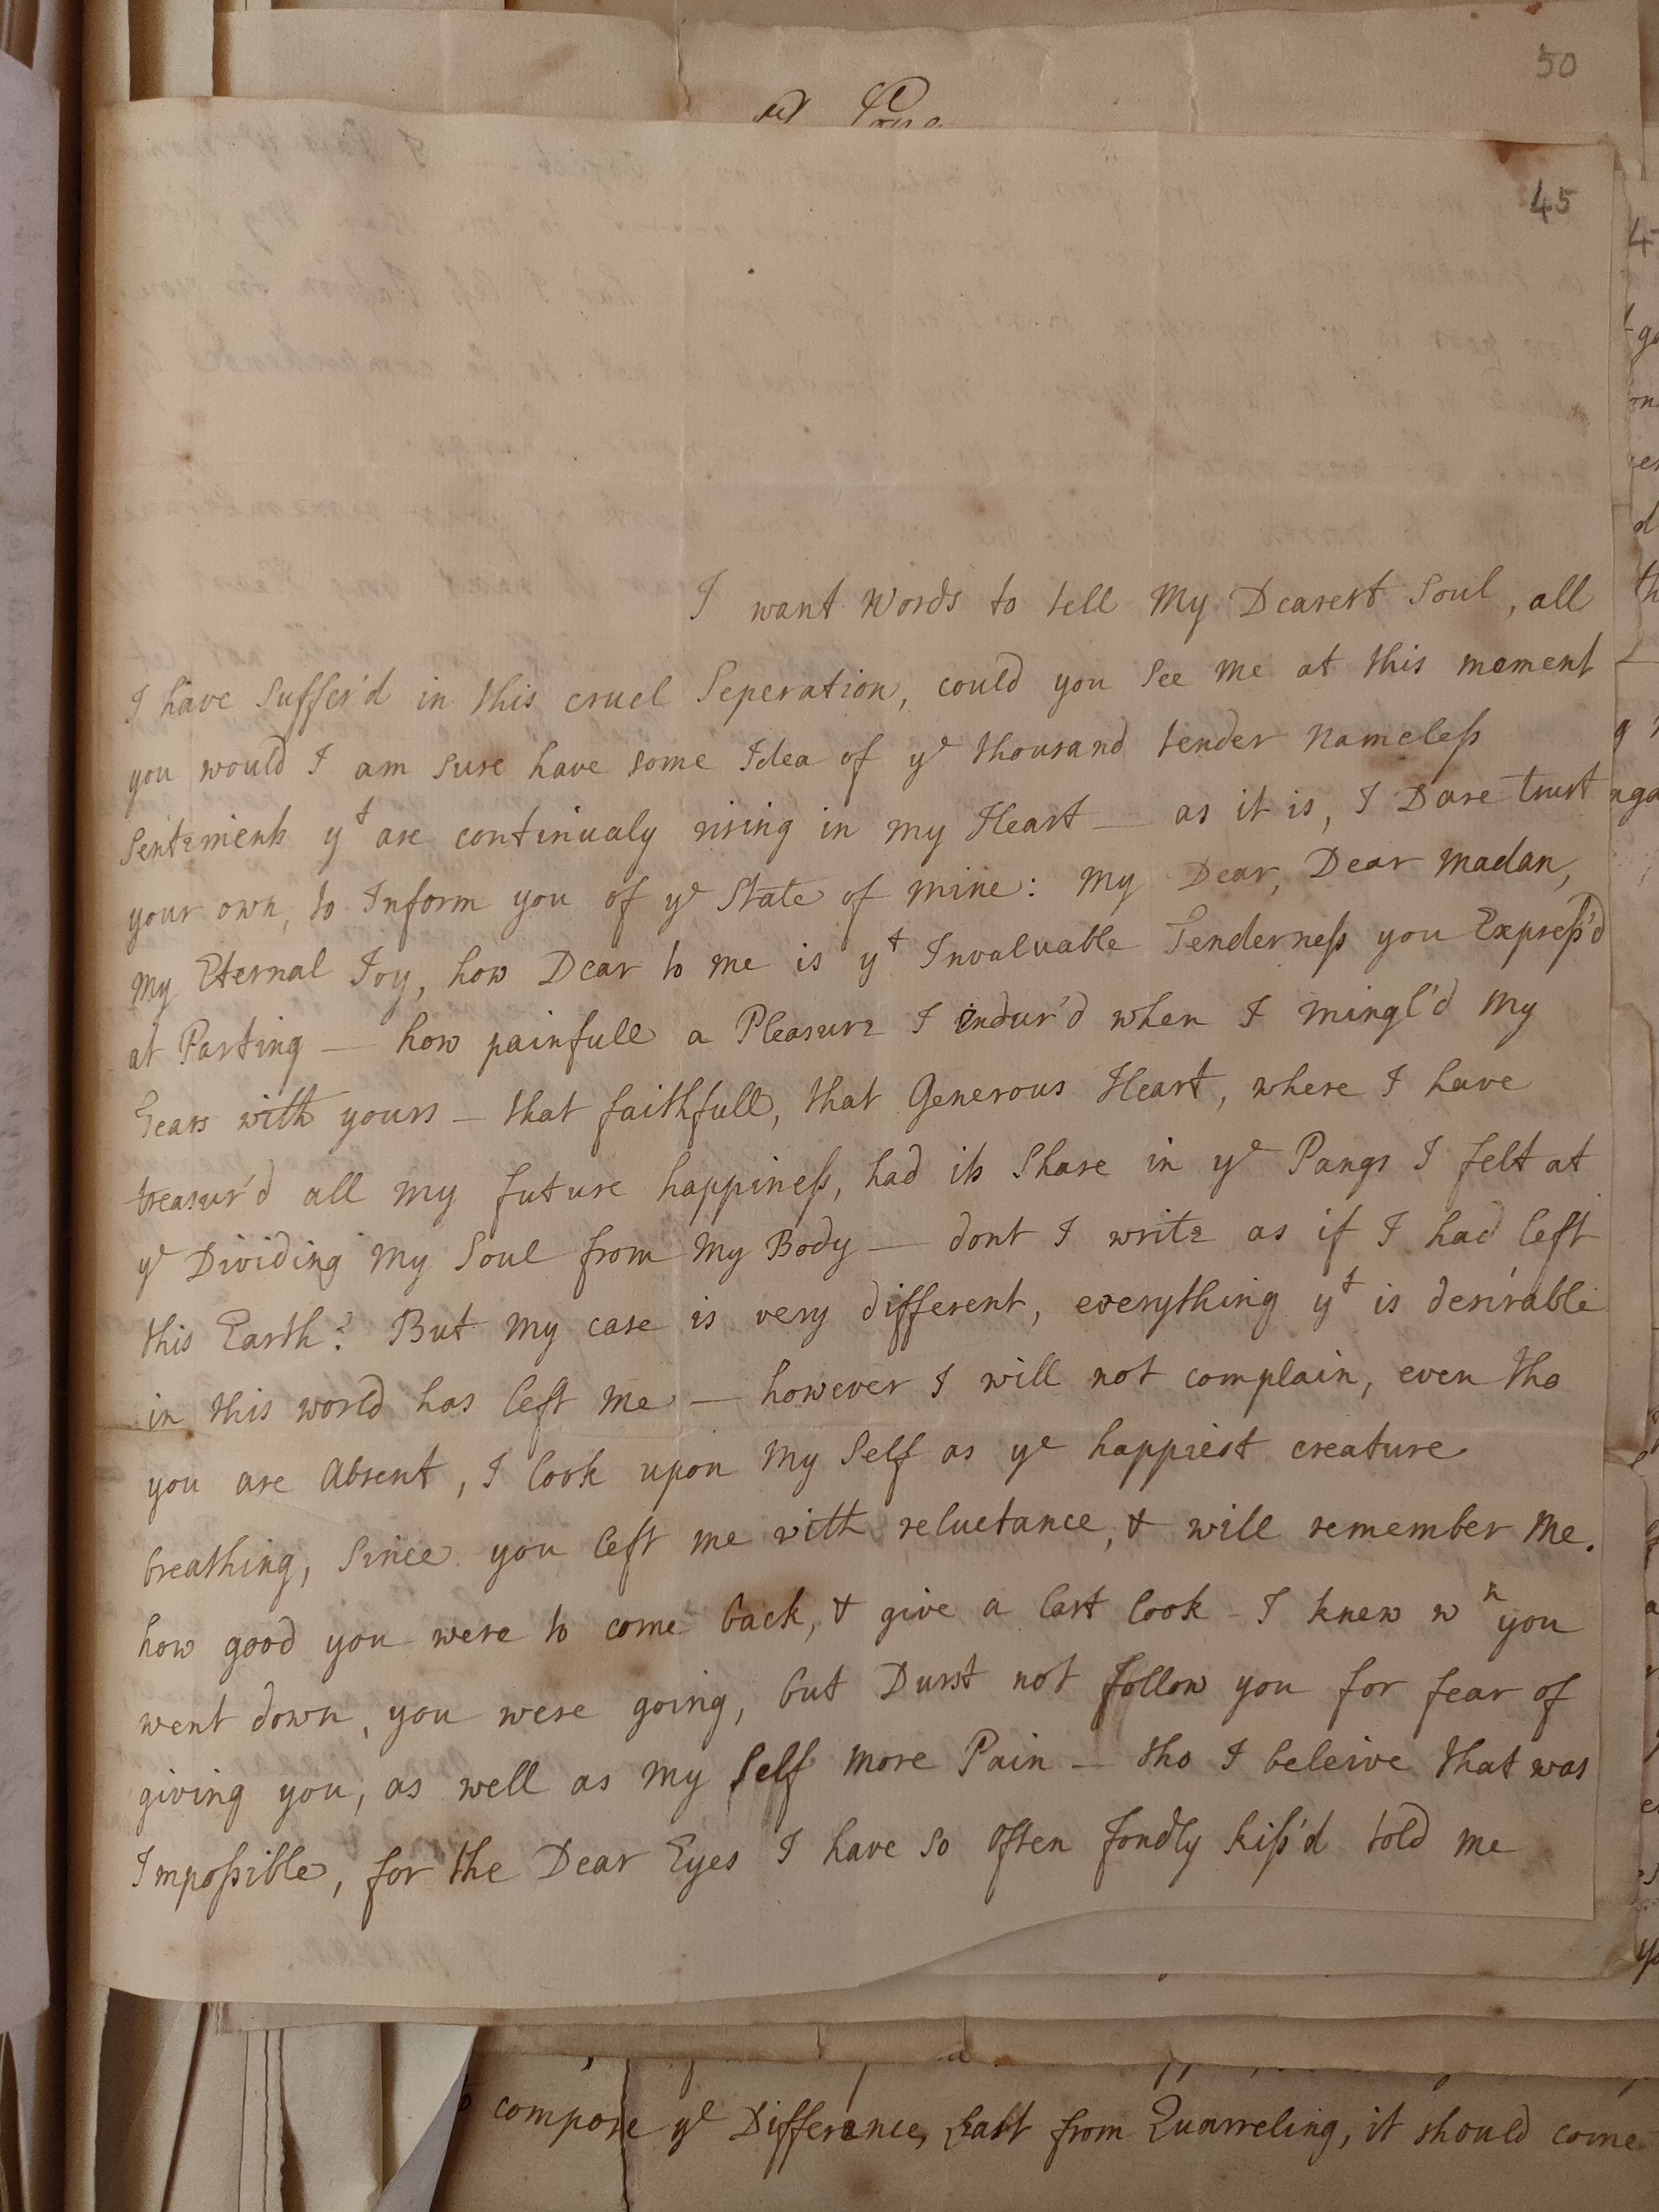 50
45
I want Words to tell My Dearest Soul, all
I have Suffer'd in this cruel Seperation, could you See me at this moment
you would I am Sure have some Idea of yᵉ thousand tender Nameless
Sentements yᵗ are continualy rising in my Heart — as it is, I Dare trust
your own, to Inform you of yᵉ State of mine: My Dear, Dear Madan,
My Eternal Joy, how Dear to me is yᵗ Invaluable Tenderness you Express'd
at Parting — how painfull a Pleasure I indur'd when I mingl'd My
Tears with yours — that faithfull, that Generous Heart, where I have
treasur'd all my future happiness, had its Share in yᵉ Pangs I felt at
yᵉ Dividing My Soul from My Body — dont I write as if I had left
this Earth? But My case is very different, everything yᵗ is desirable
in this world has left Me — however I will not complain, even tho
you are Absent, I look upon My Self as yᵉ happiest creature
breathing, Since you left me with reluctance, & will remember Me.
how good you were to come back, & give a last look - I knew wⁿ you
went down, you were going, but Durst not follow you for fear of
giving you, as well as my Self more Pain — tho I beleive that was
Impossible, for the Dear Eyes I have so Often fondly kiss'd told me
compose yᵉ Difference, Last from Quarreling, it should come